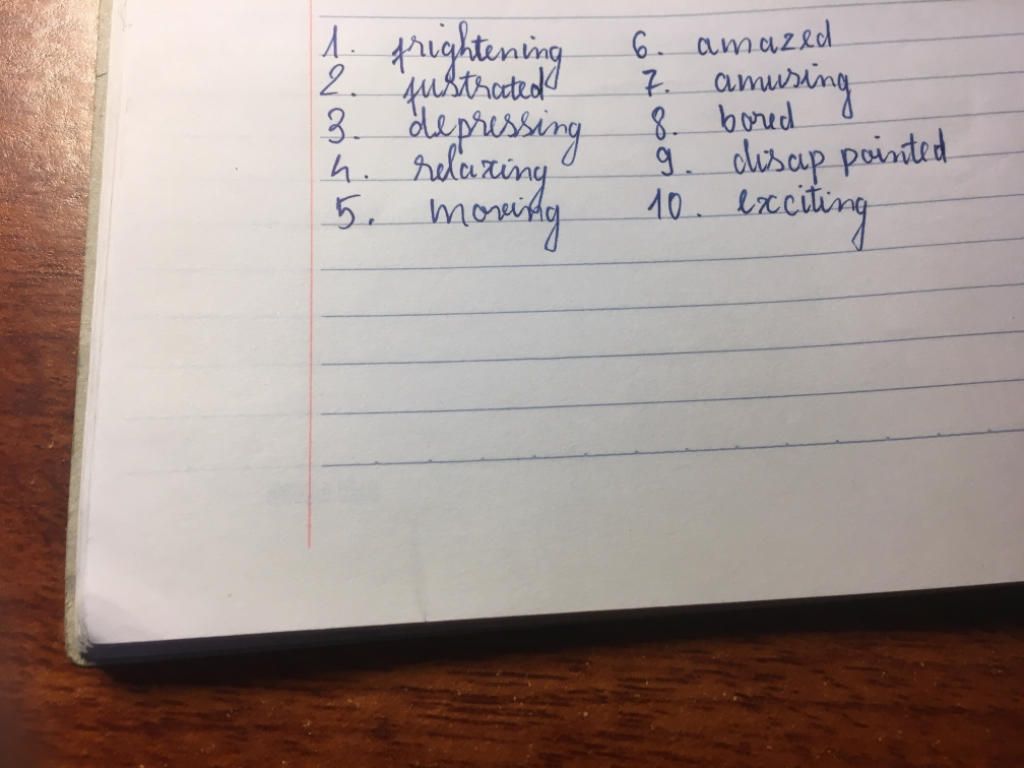 1. frightening 6. amazed
2. fustrated 7. amusing
3. depressing 8. bored
4. relaxing 9. disap pointed
5. moving 10. exciting